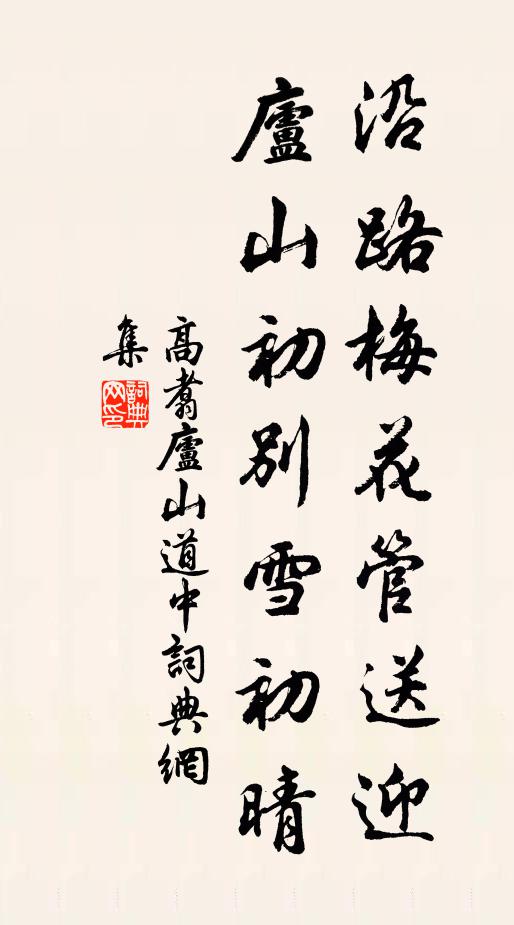 沿路梅花管送迎
廬山初別雪初晴
高翥廬山道中詞典網
集
詞典
网印